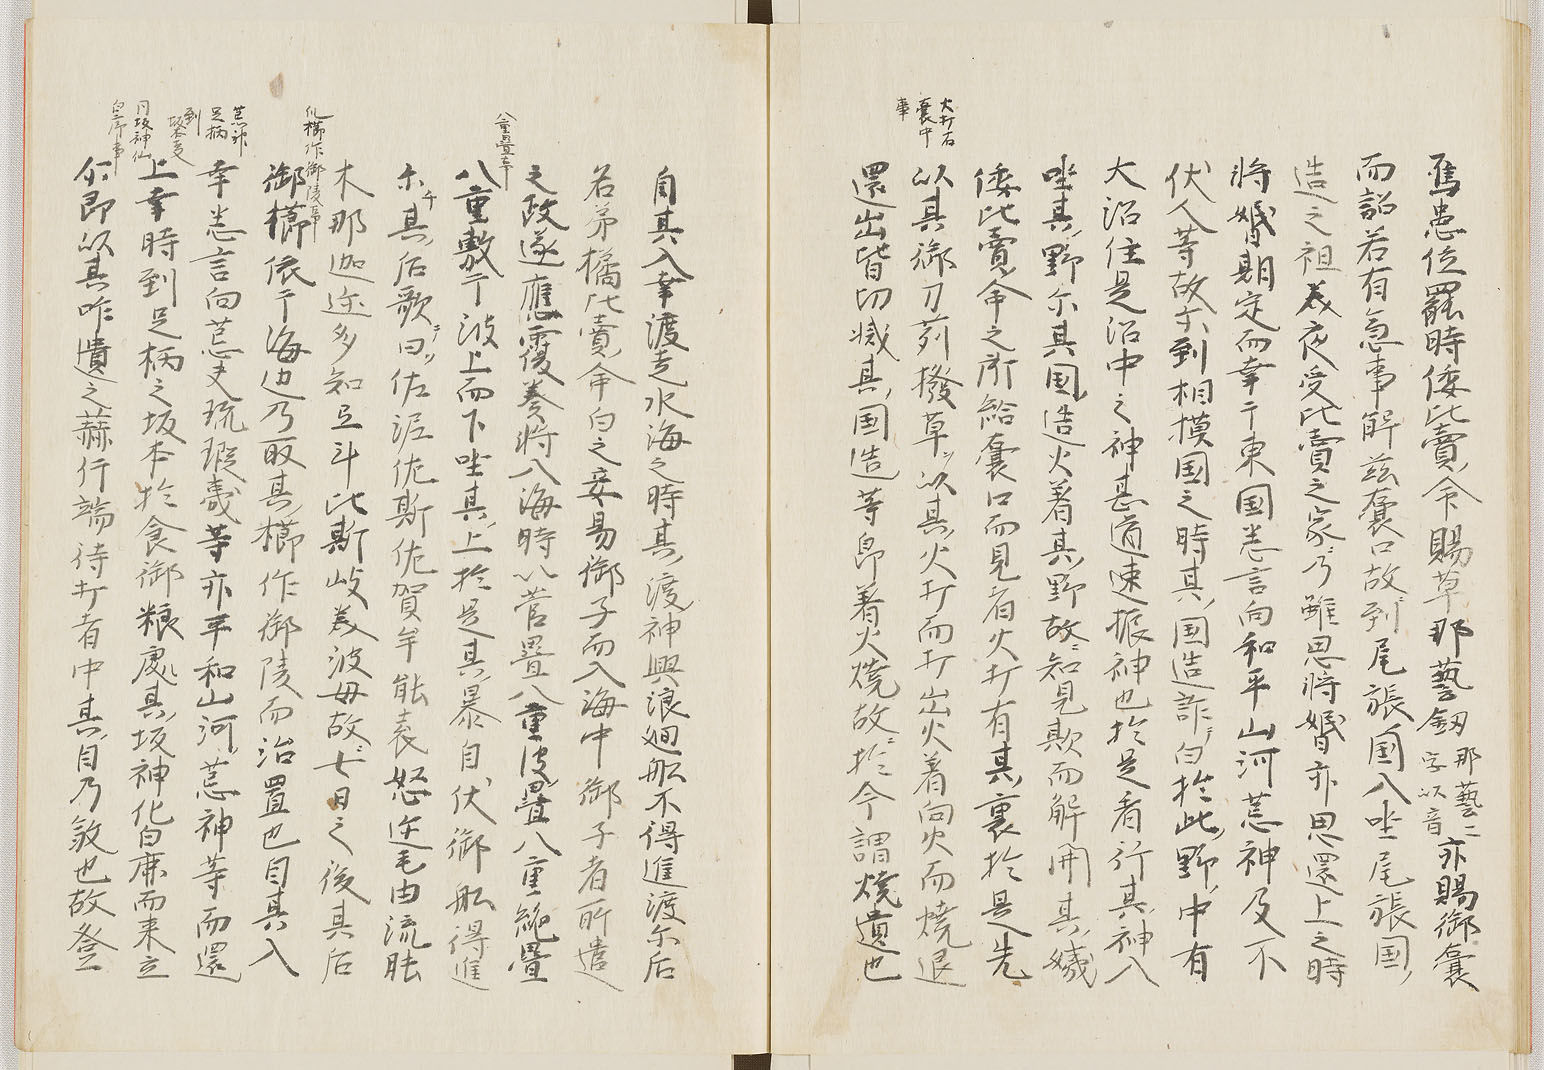 大打石
嚢中
事
焉患泣罷時倭比賣命賜草那藝釼那藝二字以音亦賜御嚢
而詔若有急事解玆嚢口故到尾張国入坐尾張国
造之祖美夜受比賣之家乃雖思将婚亦思還上之時
将婚期定而幸于東国悉言向和平山河荒神及不
伏人等故尓到相摸国之時其国造詐白於此野中有
大沼住是沼中之神甚道速振神也於是看行其神入
坐其野尓其国造火着其野故知見欺而解開其姨
倭比賣命之所給嚢口而見者火打有其裏於是先
以其御刀苅撥草以其火打而打出火着向火而焼退
還出皆切滅其国造等即着火焼故於今謂焼遺也
八重畳事
以櫛作御陵事
荒神
足柄
到
坂本事
同坂神
白
事
自其入幸渡走水海之時其渡神興浪廻舩不得進渡尓后
名弟橘比賣命白之妾易御子而入海中御子者所遣
之政遂應覆奏将入海時以菅畳八重皮畳八重絁畳
八重敷于波上而下坐其上於是其暴自伏御舩得進
尓其后歌曰佐泥佐斯佐賀牟能袁怒迩毛由流肱
木那迦迩多知弖斗比斯岐美波母故七日之後其后
御櫛依于海边乃取其櫛作御陵而治置也自其入
幸悉言向荒夫琉瑕夷等亦平和山河荒神等而還
上幸時到足柄之坂本於食御粮處其坂神化白鹿而来立
尓即以其咋遺之蒜行端待打者中其目乃敘也故登